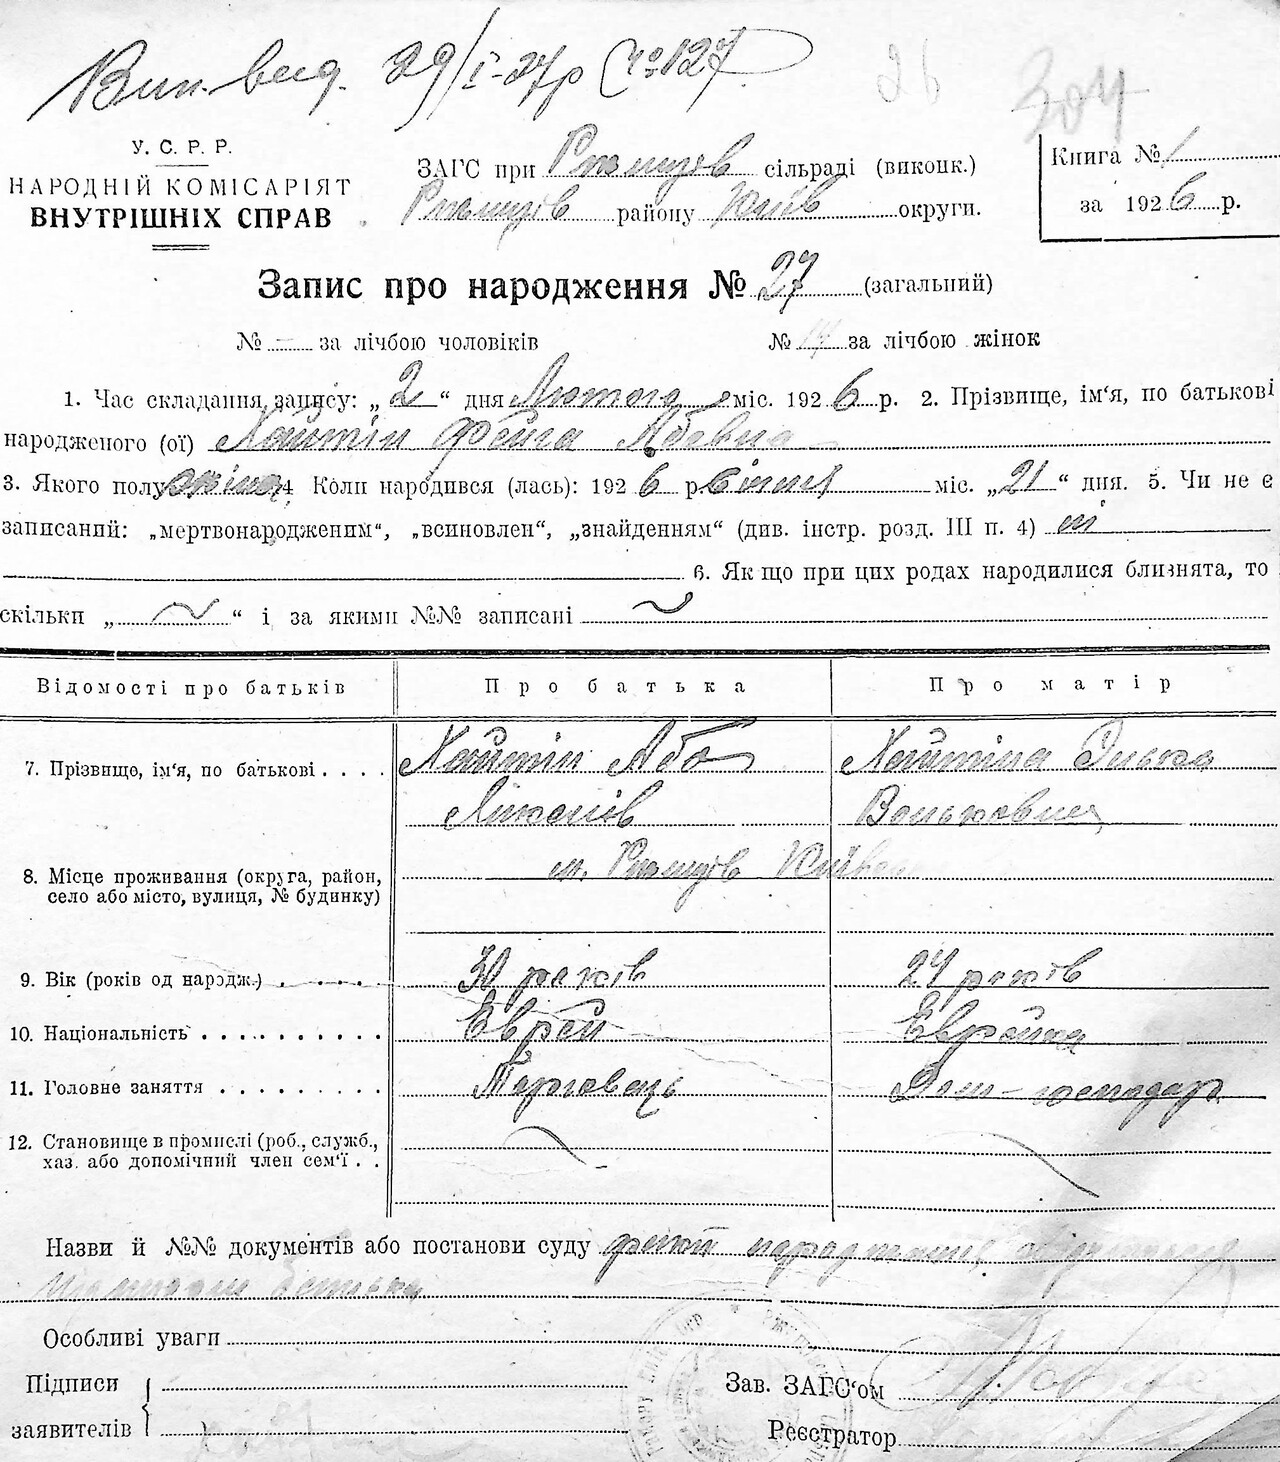 Вип. вид. 29/I-27р (№127)
26 304
У. С. Р. Р.
НАРОДНІЙ КОМІСАРІЯТ
ВНУТРІШНІХ СПРАВ
ЗАГС при Ржищів сільраді (виконк.)
Ржищів району Київ округи.
Книга № 1
за 1926 р.
Запис про народження № 27 (загальний)
№ — за лічбою чоловіків № 14 за лічбою жінок
1. Час складання запису: „2“ дня Лютого міс. 1926 р. 2. Прізвище, ім‘я, по батькові
народженого (ої) Хайтін Фейга Абовна
3. Якого полу жіноч 4 Коли народився (лась): 1926 р. Січня міс. „21“ дня. 5. Чи не є
записаний: „мертвонародженим“, „всиновлен“, „знайденням“ (див. інстр. розд. III п. 4) ні
6. Як що при цих родах народилися близнята, то
скільки „ “ і за якими №№ записані
Відомості про батьків Про батька Про матір
7. Прізвище, ім‘я, по батькові . . . . Хайтін Або Хайтіна Элька
Вольковна
8. Місце проживання (округа, район, м. Ржищів Київськ
село або місто, вулиця, № будинку)
9. Вік (років од народж.) . . . . . 30 років 24 років
10. Національність . . . . . . . . . . Еврей Еврейка
11. Головне заняття . . . . . . . . . Торговець Дом-господар
12. Становище в промислі (роб., служб.,
хаз. або допомічний член сем‘ї . .
Назви й №№ документів або постанови суду
Особливі уваги
Підписи
заявителів
Зав. ЗАГС‘ом
Реєстратор